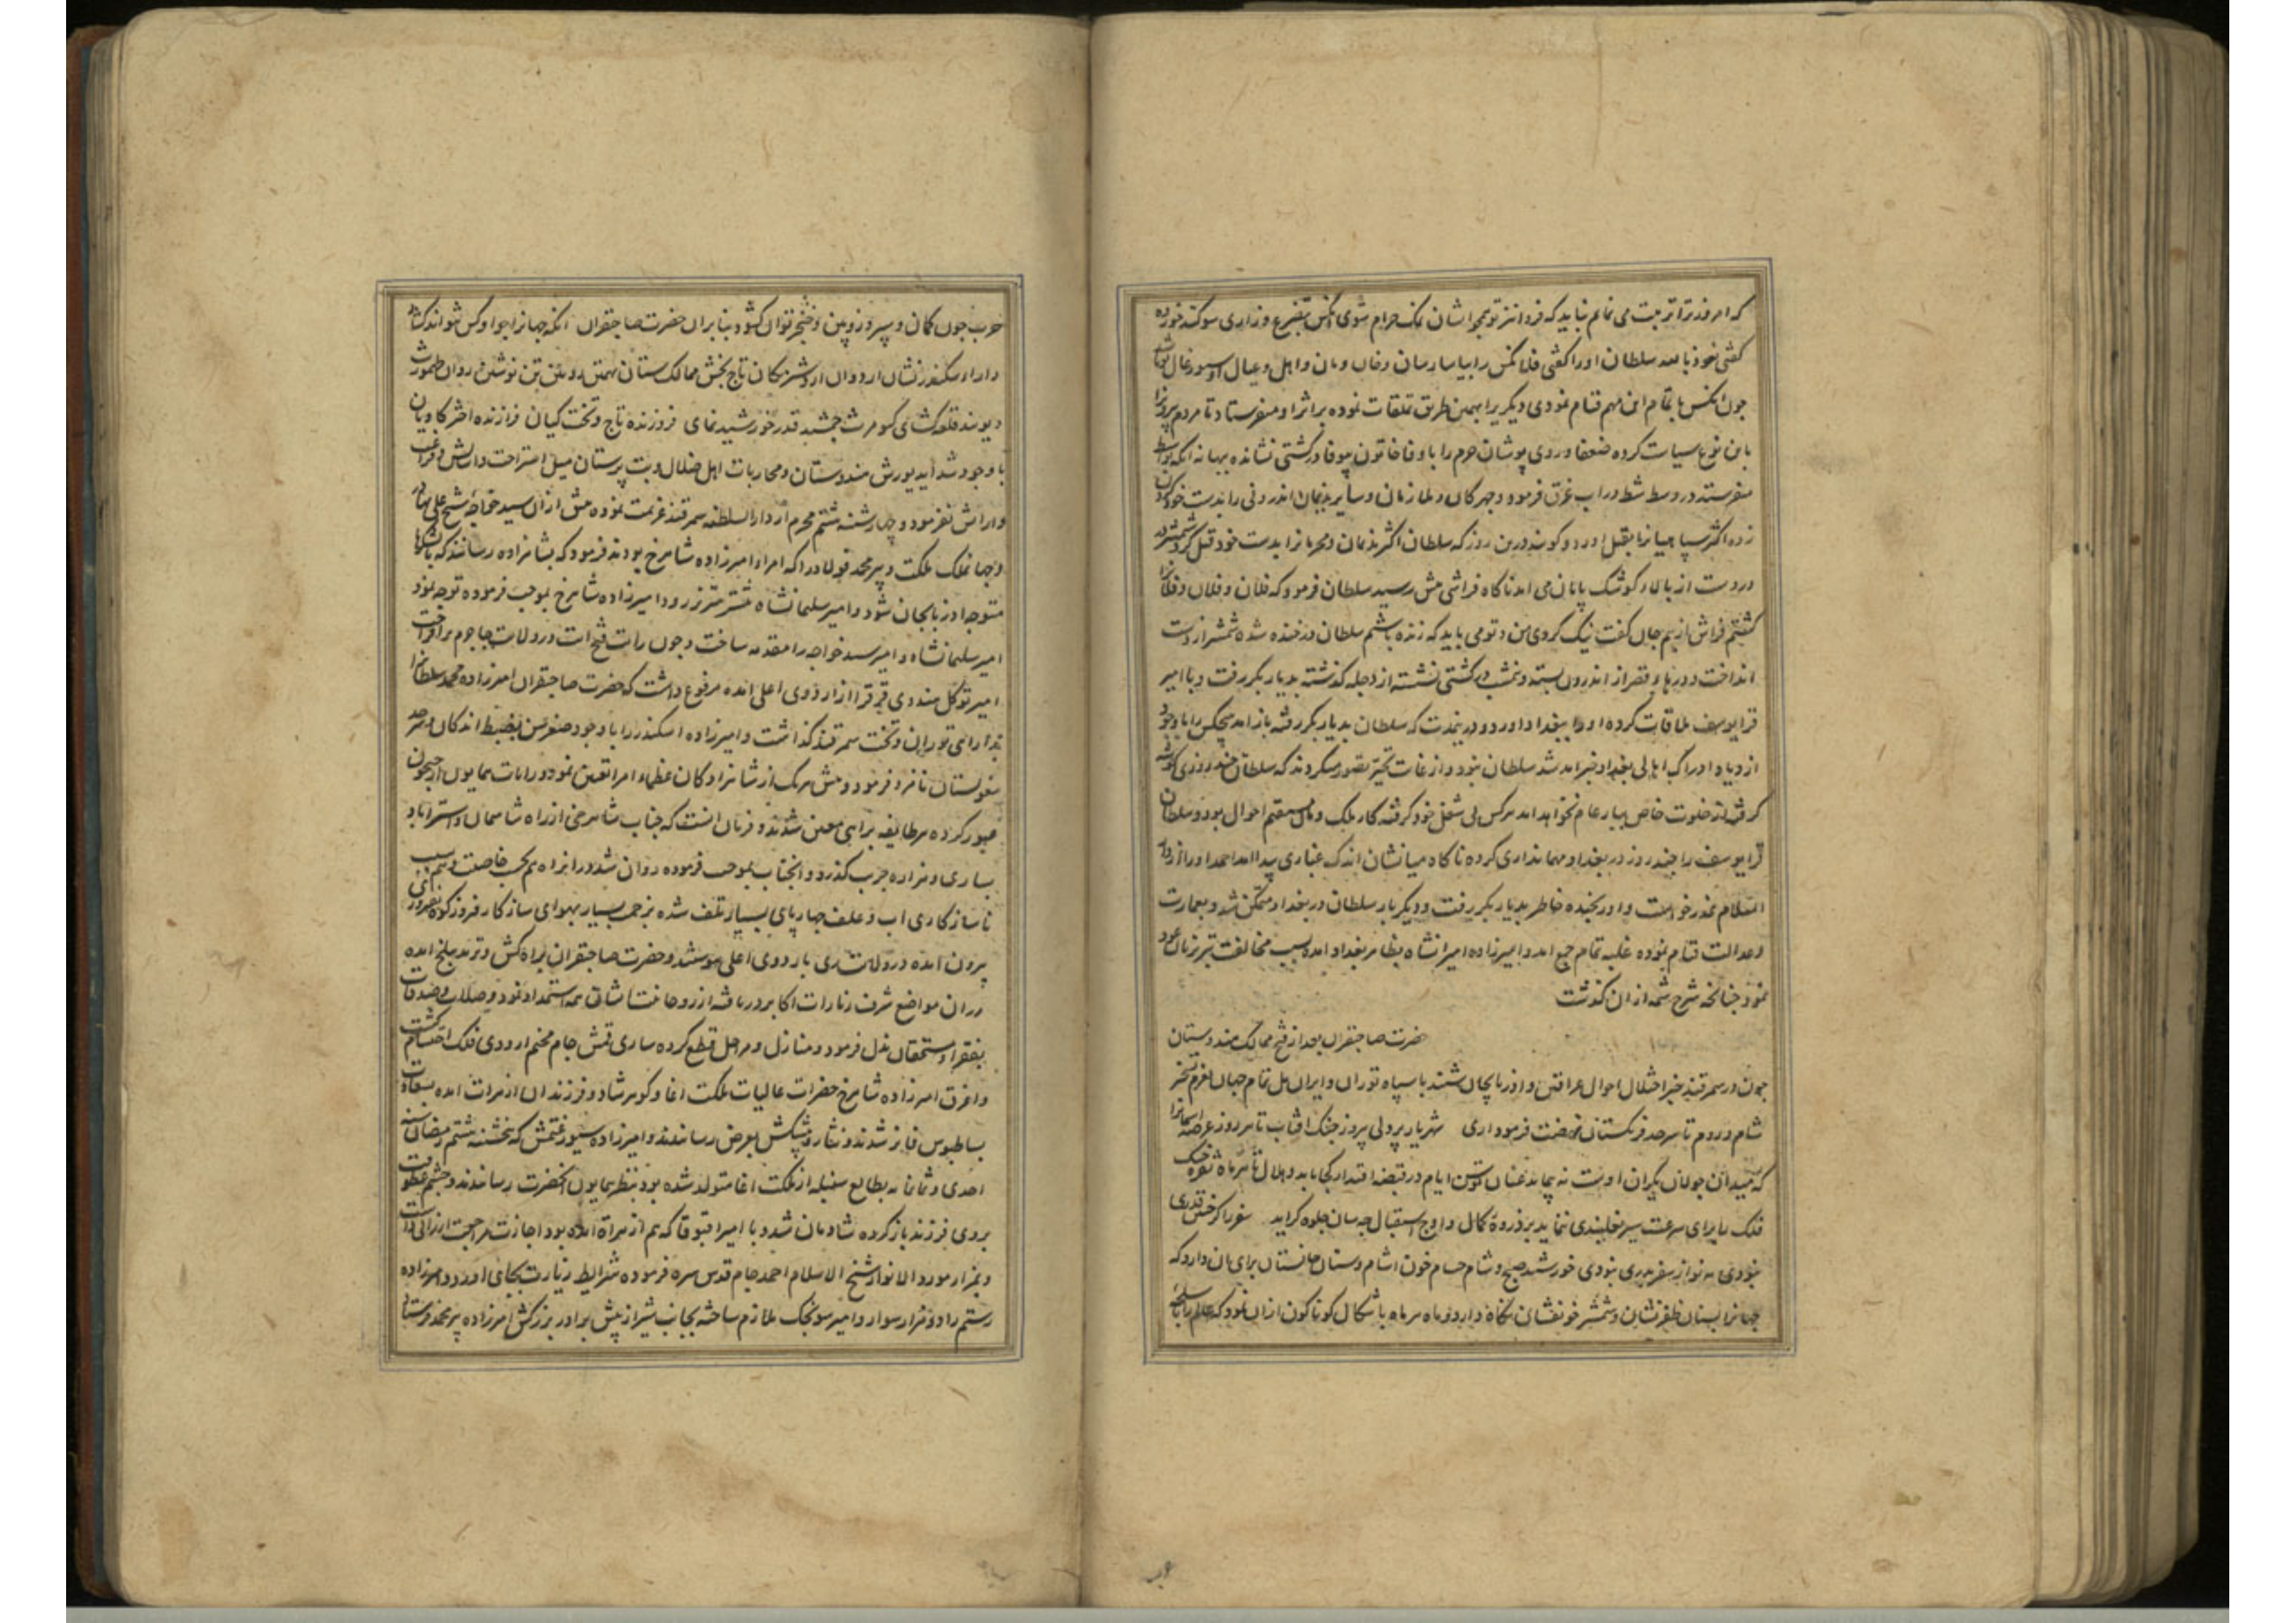 که امروز ترا تربیت می نمایم نباید که فردا نیز تو همچو ایشان نمک حرام شوی آنکس بتضرع و زاری سوکند خورده
کفتی نعوذ بالله سلطان او را کفتی فلانکس را بیاسا رسان و خان و مان و اهل و عیال او سیورغال تست
چون آنکس باتمام این مهم قیام نمودی دیکریرا بهمین طریق تعلقات نموده بر اثر او میفرستاد تا مردم
باین نوع سیاست کرده ضعفا و روی پوشان حرم را با وفا خاتون بیوفا در کشتی نشانده ببهانه آنکه بواسط
میفرستد در وسط شط در آب غرق فرمود و چهرکان و ملازمان و سایر ندیمان اندرونی را بدست خود کردن
زده اکثر سپاهیانرا بقتل آورد و کویند درین روز که سلطان اکثر ندیمان و محرمانرا بدست خود قتل کرد شمشیر
در دست از بالا کوشک پایان می آمد ناکاه فراشی پیش رسید سلطان فرمود که فلان و فلان و فلانرا
کشتم فراش از بیم جان کفت نیک کردی من و تو می باید که زنده باشیم سلطان در خنده شده شمشیر از دست
انداخت و درها و قصر از اندرون بسته و شب در کشتی نشسته از دجله کذشته بدیار بکر رفت و با امیر
قرا یوسف ملاقات کرده او را ببغداد آورد و درین مدت که سلطان بدیار بکر رفته باز آمد هیچکس را با وجود
ازدیاد ادراک اهالی بغداد خبر آمد شد سلطان نبود و از غایت تحیر تصور میکردند که سلطان چند روزی کوشه
کرفته از خلوت خاص ببار عام نخواهد آمد هرکس پی شغل خود کرفته کار ملک و مال مستقیم احوال بود و سلطان
قرا یوسف را چند روز در بغداد مهمانداری کرده ناکاه میانشان اندک غباری پیدا آمد احمد او را از دار
السلام عذر خواست و او رنجیده خاطر بدیار بکر رفت و دیکر بار سلطان در بغداد متمکن شد و بعمارت
و عدالت قیام نموده غلبه تمام جمع آمد و امیرزاده امیرانشاه بظاهر بغداد آمده بسبب مخالفت تبریزیان عود
نمود چنانچه شرح شمه از آن کذشت
حضرت صاحبقران بعد از فتح ممالک هندوستان
چون در سمرقند خبر اختلال احوال عراقین و آذربایجان شنید با سپاه توران و ایران بل تمام جهان بعزم تسخیر
شام و روم تا سرحد فرنکستان نهضت فرمود آری شهریار پر دلی پیروز جنک آفتاب تا هر روز عرصه آسمانرا
که میدان جولان یکران اوست نه پیماید عنان توسن ایام در قبضه اقتدار کجا یابد و هلال تا هر ماه نقره خنک
فلک را برای سرعت سیر نعلبندی ننماید بر ذروه کمال و اوج استقبال چه سان جلوه کر آید سفر را کر خس قدری
نبودی مه نو از سفر بدری نبودی خورشید صبح و شام حسام خون آشام دستان جانستان برای آن دارد که
جهانرا بسنان ظفر نشان و شمشیر خونفشان نکاه دارد و ماه هر ماه باشکال کوناکون از آن نمود که عالم را باسلحه
حرب چون کمان و سپر و زوبین و خنجر توان کشود بنا بران حضرت صاحبقران آنکه جهانرا جو او کس نتواند کشاد
دارا و سکندر نشان اردوان اردشیر مکان تاج بخش ممالک ستان تهمتن رویین تن نوشین روان طهمورث
دیوبند قلعه کشای کیومرث جمشید قدر خورشید نمای فروزنده تاج و تخت کیان فرازنده اختر کاویان
با وجود شداید یورش هندوستان و محاربات اهل ضلال و بت پرستان میل استراحت و آسایش و فراغت
و آرامش نفرمود و چهارشنبه هشتم محرم از دار السلطنه سمرقند عزیمت نموده پیش از آن سید خواجه شیخ علی بهادر
و جهان ملک ملکت و پیر محمد فولاد را که امراء امیرزاده شاهرخ بودند فرمود که بشاهزاده رسانند که با لشکرها
متوجه آذربایجان شود و امیر سلیمانشاه پیشتر رود امیرزاده شاهرخ بموجب فرموده توجه نمود
امیر سلیمانشاه و امیر سید خواجه را مقدمه ساخت و چون رایت فتح آیت در ولایت جاجرم برافراخت
امیر توکل هندوی قرقرا از اردوی اعلی آمده مرفوع داشت که حضرت صاحبقران امیرزاده محمد سلطانرا
بدارائی توران و تخت سمرقند کذاشت و امیرزاده اسکندر را با وجود صغر سن بضبط اندکان سرحد
مغولستان نامزد فرمود و پیش هریک از شاهزادکان عظماء امرا تعیین نمود و رایات همایون از جیحون
عبور کرده هر طایفه براهی معین شدند و فرمان آنست که جناب شاهرخی از راه شاسمان و استراباد
و ساری و هزاره جریب کذرد و آنجناب بموجب فرموده روان شد و در آن راه هم بحسب خاصیت و هم بسبب
ناسازکاری آب و علف چهارپای بسیار تلف شده بزحمت بسیار بهوای سازکار فیروزکوه
بیرون آمده در ولایت ری باردوی اعلی پیوستند و حضرت صاحبقران براه کش و ترمد ببلخ آمده
در آن مواضع شرف زیارات اکابر دریافته از روحانیت ایشان همه استمداد نمود و صلات و صدقات
بفقرا و مستحقان بذل فرمود و منازل و مراحل قطع کرده ساری قمش جام مخیم اردوی فلک احتشام کشت
و اغرق امیرزاده شاهرخ حضرات عالیات ملکت اغا و کوهرشاد و فرزندان از هرات آمده بسعادت
بساطبوس فایز شدند و نثار و پیشکش بعرض رساندند و امیرزاده سیورغتمش که پنجشنبه هشتم رمضان سنه
احدی و ثمانمایه بطالع سنبله از ملکت اغا متولد شده بود بنظر همایون آنحضرت رساندند و چشم عطوفت
بروی فرزند باز کرده شادمان شد و با امیر اقبوقا که هم از هراة آمده بود اجازت مراجعت ارزانی داشت
و بمزار مورد الانوار شیخ الاسلام احمد جام قدس سره فرموده شرایط زیارت بجای آورد و امیرزاده
رستم را دو هزار سوار و امیر سونجک ملازم ساخته بجانب شیراز پیش برادر بزرکش امیرزاده پیر محمد فرستاد